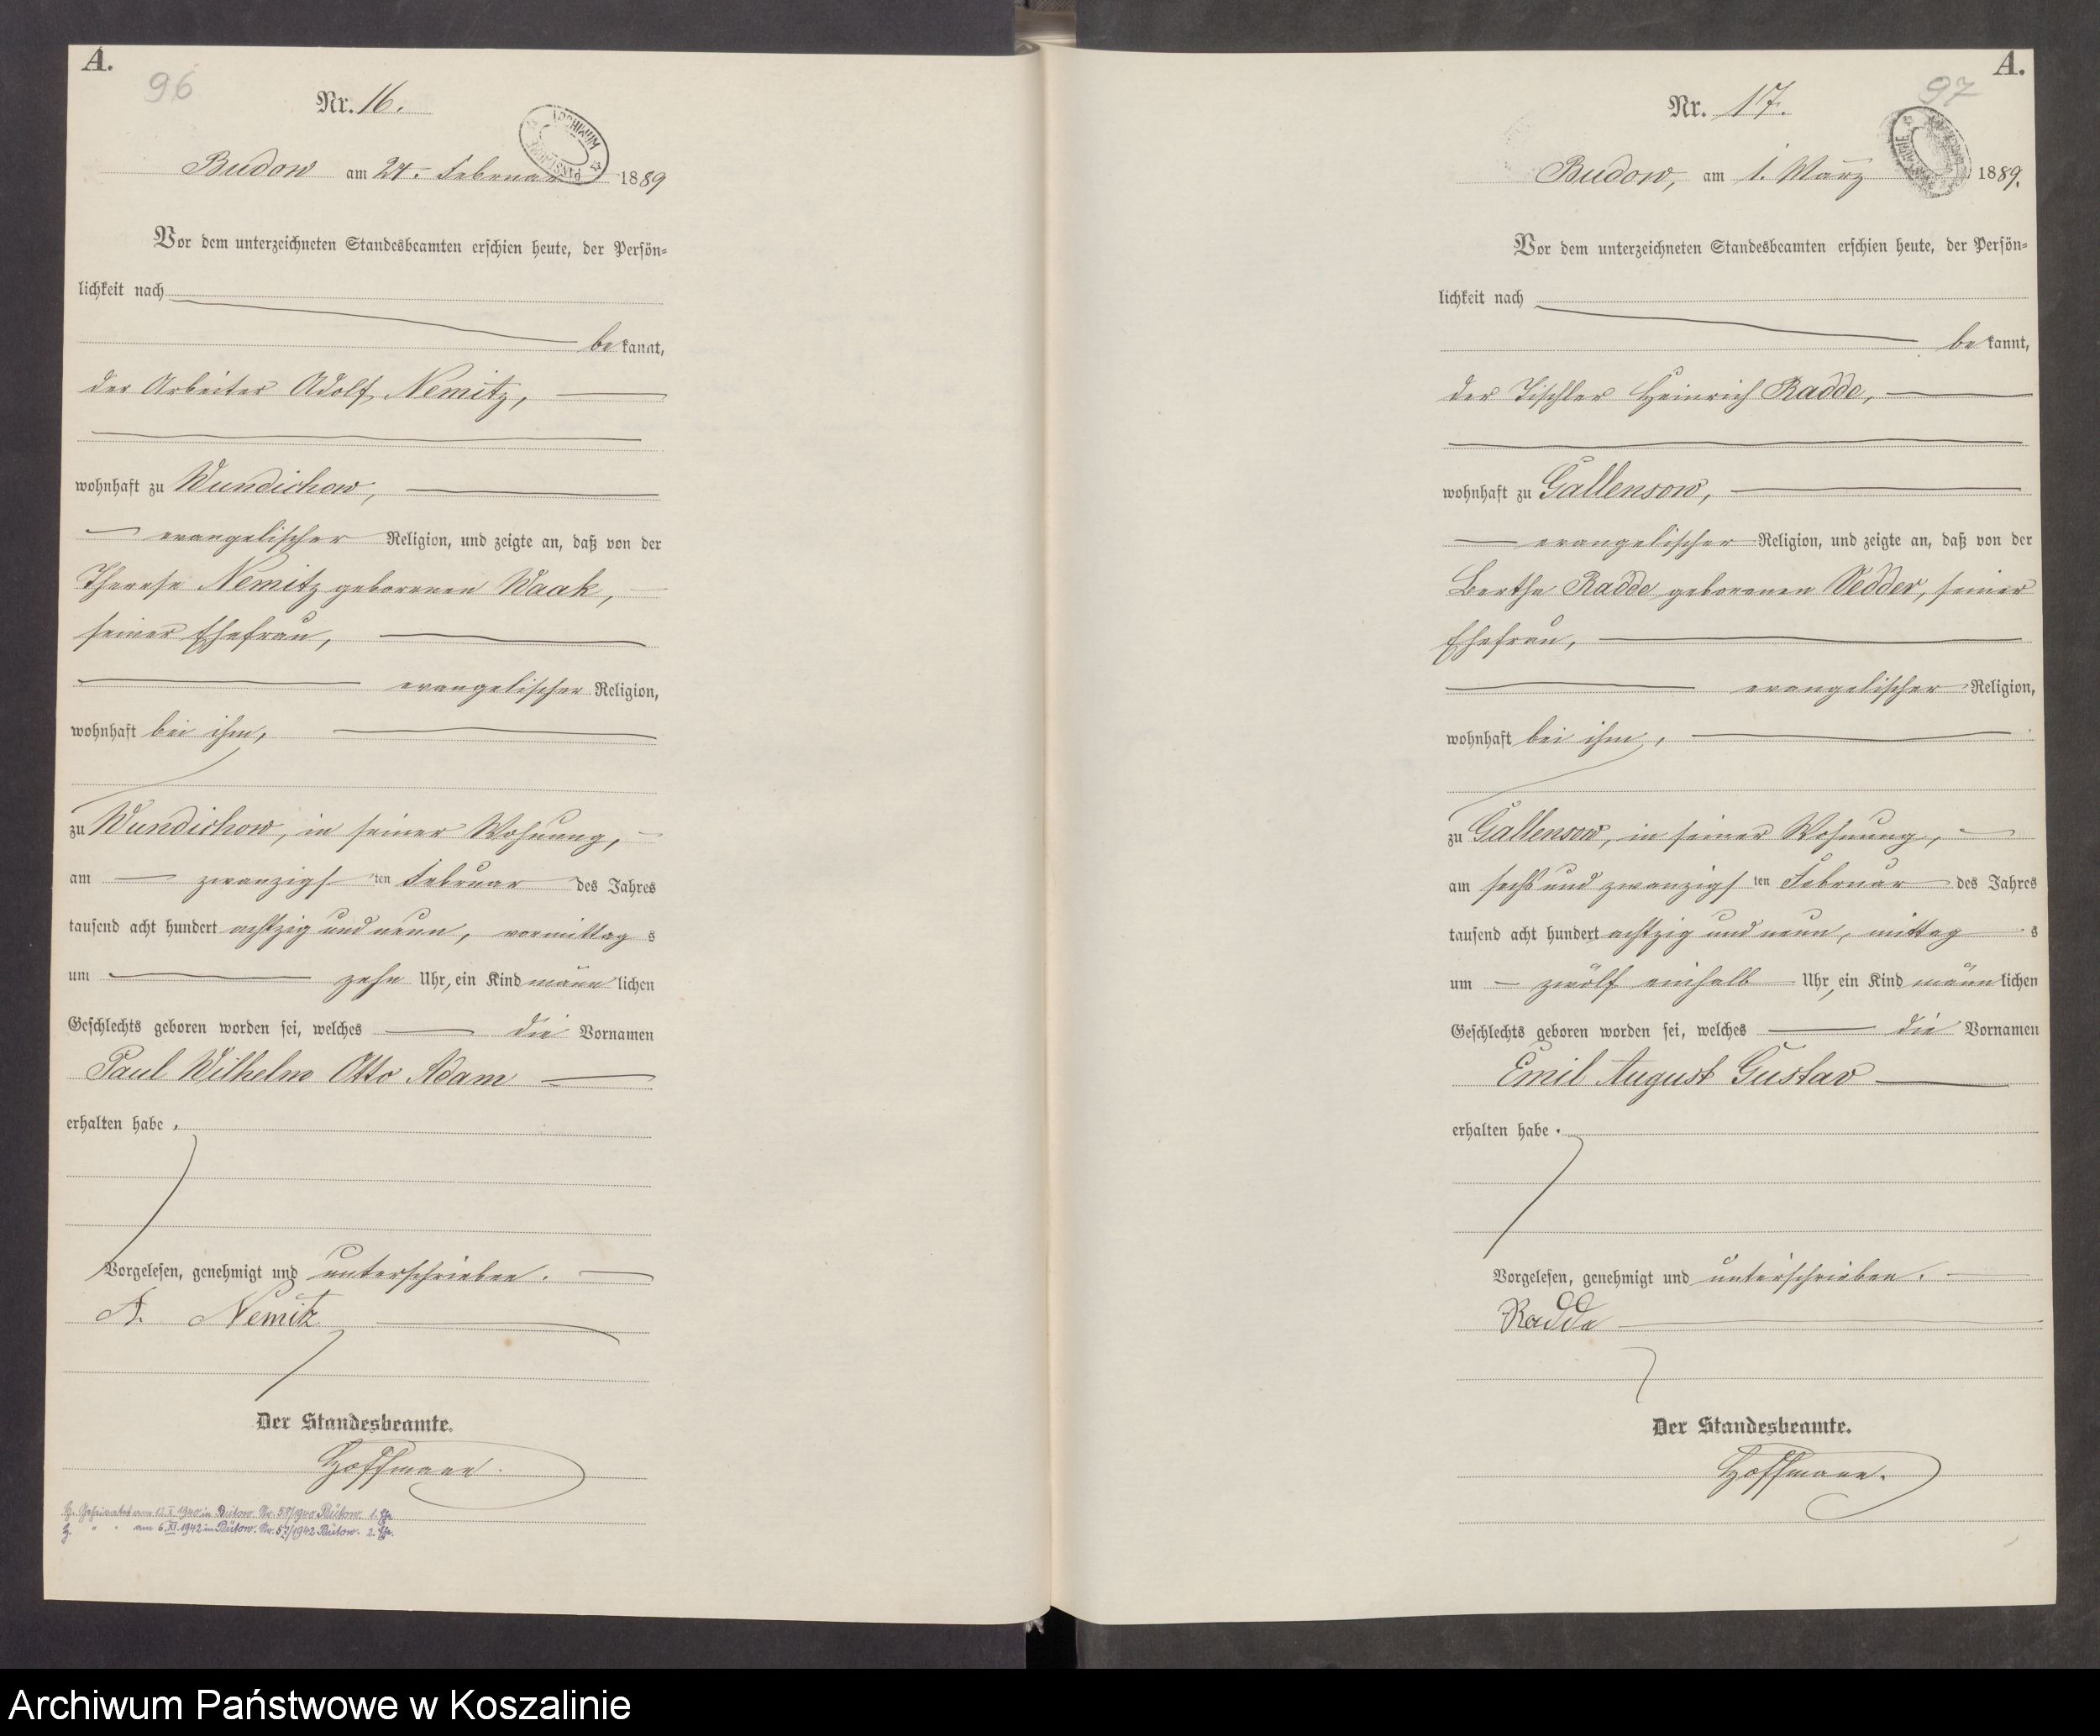 A.
96
Nr. 16.
ARCHIWUM
PAŃSTWOWE
Budow am 27. Februar 1889
Vor dem unterzeichneten Standesbeamten erschien heute, der Persön=
lichkeit nach
be kannt,
der Arbeiter Adolf Nemitz,
wohnhaft zu Wundichow,
evangelischer Religion, und zeigte an, daß von der
Therese Nemitz geborenen Waak,
seiner Ehefrau,
evangelischer Religion,
wohnhaft bei ihm,
zu Wundichow, in seiner Wohnung,
am zwanzigs ten Februar des Jahres
tausend acht hundert achtzig und neun, vormittag s
um zehn Uhr, ein Kind männ lichen
Geschlechts geboren worden sei, welches die Vornamen
Paul Wilhelm Otto Adam
erhalten habe.
Vorgelesen, genehmigt und unterschrieben.
A. Nemitz
Der Standesbeamte.
Hoffmann.
H. Geheiratet am 12. X. 1940 in Bütow. Nr. 58/1940 Bütow. 1. Ehe.
H. " " am 6. XI. 1942 in Bütow. Nr. 57/1942 Bütow. 2. Ehe.
A.
97
Nr. 17.
Budow, am 1. März 1889.
Vor dem unterzeichneten Standesbeamten erschien heute, der Persön=
lichkeit nach
be kannt,
der Tischler Heinrich Radde,
wohnhaft zu Gallensow,
evangelischer Religion, und zeigte an, daß von der
Bertha Radde geborenen Vedder, seiner
Ehefrau,
evangelischer Religion,
wohnhaft bei ihm,
zu Gallensow, in seiner Wohnung,
am sechs und zwanzigs ten Februar des Jahres
tausend acht hundert achtzig und neun, mittag s
um zwölf einhalb Uhr, ein Kind männ lichen
Geschlechts geboren worden sei, welches die Vornamen
Emil August Gustav
erhalten habe.
Vorgelesen, genehmigt und unterschrieben.
Radde
Der Standesbeamte.
Hoffmann.
Archiwum Państwowe w Koszalinie